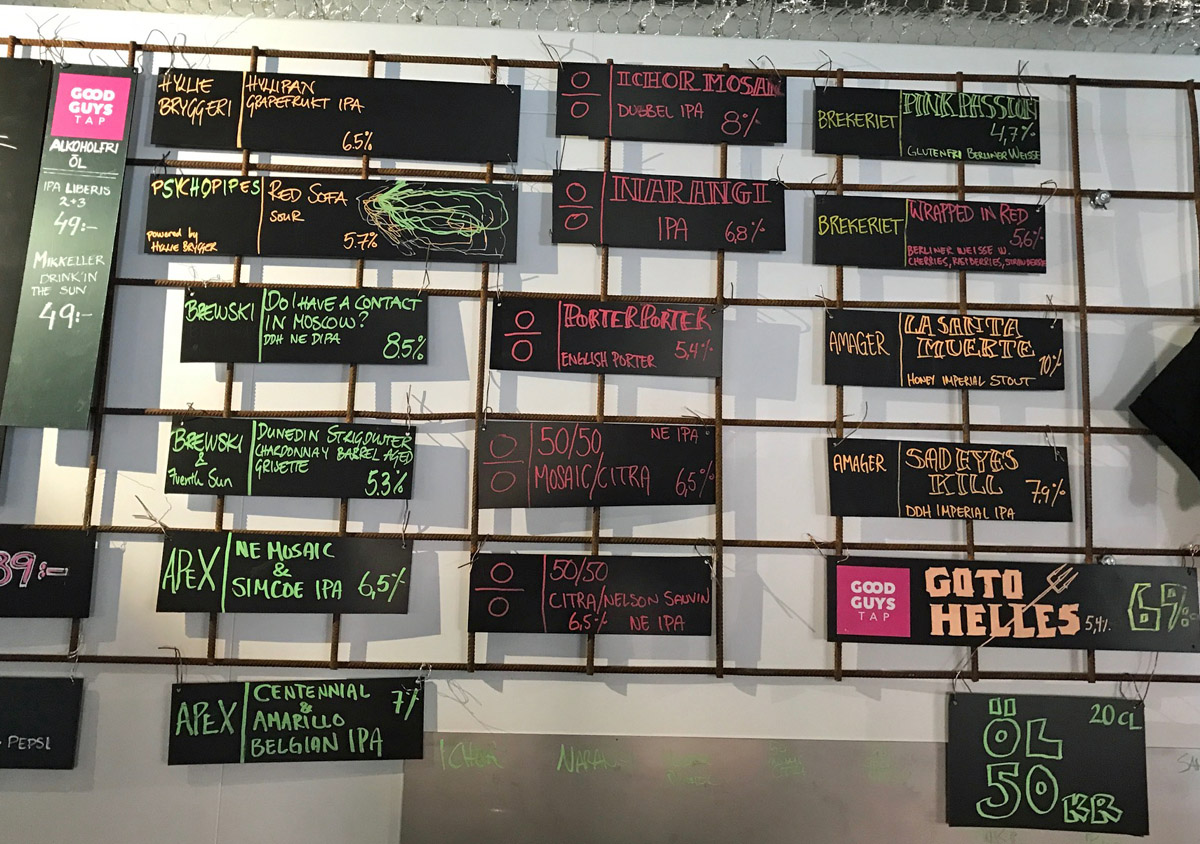 GOOD
GUYS
TAP
ALKOHOLFRI
ÖL
IPA LIBERIS
2+3
49:-
MIKKELLER
DRINK'IN
THE SUN
49:-
39:-
PEPSI
HYLLIE
BRYGGERI
HYLLIPAN
GRAPEFRUKT IPA
6.5%
PSYCHOPIPES
powered by
HYLLIE BRYGGERI
RED SOFA
SOUR
5.7%
BREWSKI
DO I HAVE A CONTACT
IN MOSCOW?
DDH NE DIPA
8.5%
BREWSKI
&
7venth Sun
DUNEDIN STRIGOWLTER
CHARDONNAY BARREL AGED
GRISETTE
5.3%
APEX
NE MOSAIC
&
SIMCOE IPA 6,5%
APEX
CENTENNIAL
&
AMARILLO
BELGIAN IPA
7%
O/O
ICHOR MOSAIK
DUBBEL IPA
8%
O/O
NARANGI
IPA 6,8%
O/O
PORTER PORTER
ENGLISH PORTER 5,4%
O/O
50/50 NE IPA
MOSAIC/CITRA 6,5%
O/O
50/50
CITRA/NELSON SAUVIN
6,5% NE IPA
BREKERIET
PINK PASSION
4,7%
GLUTENFRI BERLINER WEISSE
BREKERIET
WRAPPED IN RED
5,6%
BERLINER WEISSE W.
CHERRIES, RASPBERRIES, STRAWBERRIES
AMAGER
LA SANTA
MUERTE
10%
HONEY IMPERIAL STOUT
AMAGER
SAD EYES
KILL
7,9%
DDH IMPERIAL IPA
GOOD
GUYS
TAP
GOTO
HELLES 5,4%
69:-
20 CL
ÖL
50 KR
ICHOR NARANGI